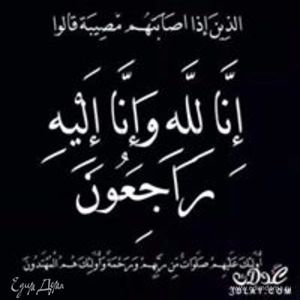 الذين إذا اصابتهم مصيبة قالوا
إِنَّا لِلَّهِ وَإِنَّا إِلَيْهِ
رَاجِعُونَ
أُولَٰئِكَ عَلَيْهِمْ صَلَوَاتٌ مِّن رَّبِّهِمْ وَرَحْمَةٌ وَأُولَٰئِكَ هُمُ الْمُهْتَدُونَ
3DLAT.COM